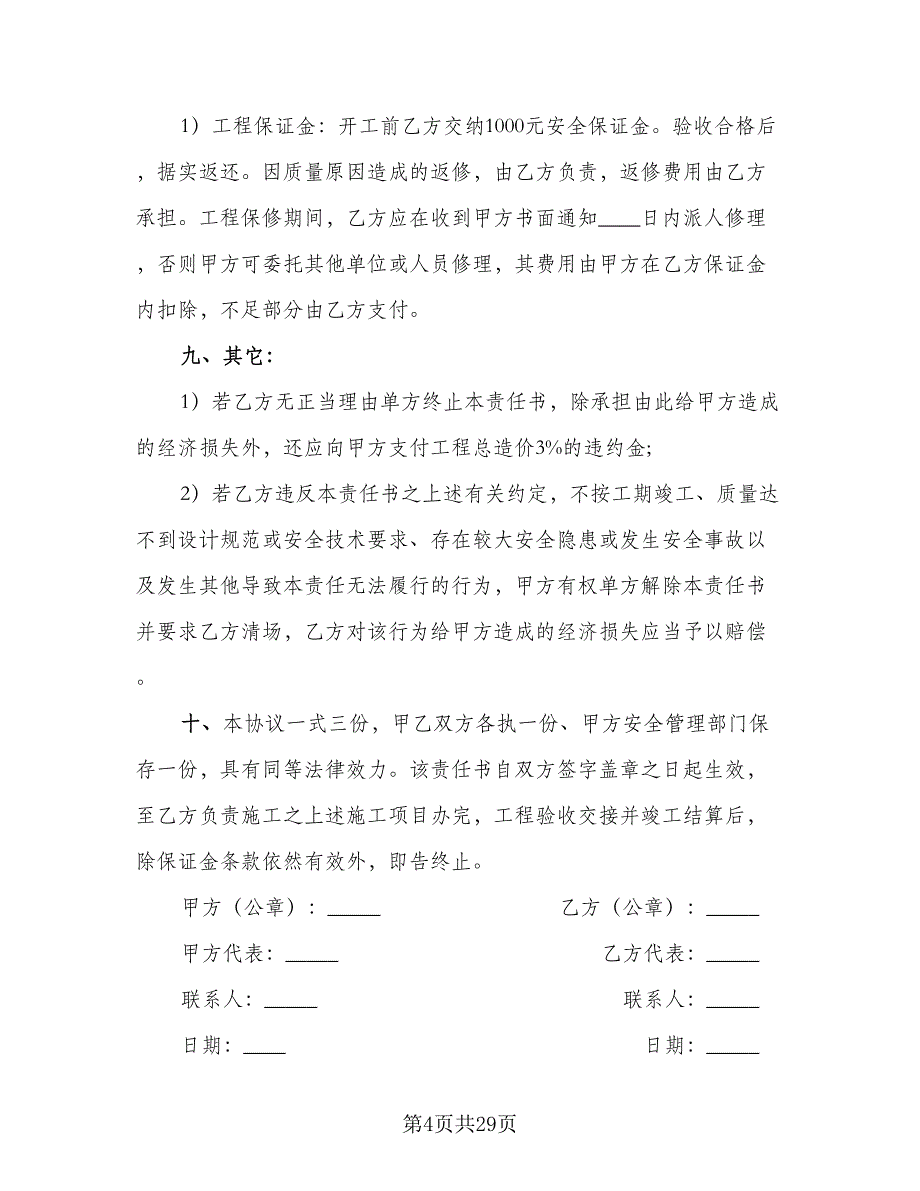 1）工程保证金：开工前乙方交纳1000元安全保证金。验收合格后
，据实返还。因质量原因造成的返修，由乙方负责，返修费用由乙方
承担。工程保修期间，乙方应在收到甲方书面通知____日内派人修理
，否则甲方可委托其他单位或人员修理，其费用由甲方在乙方保证金
内扣除，不足部分由乙方支付。
九、其它：
1）若乙方无正当理由单方终止本责任书，除承担由此给甲方造成
的经济损失外，还应向甲方支付工程总造价3%的违约金;
2）若乙方违反本责任书之上述有关约定，不按工期竣工、质量达
不到设计规范或安全技术要求、存在较大安全隐患或发生安全事故以
及发生其他导致本责任无法履行的行为，甲方有权单方解除本责任书
并要求乙方清场，乙方对该行为给甲方造成的经济损失应当予以赔偿
。
十、本协议一式三份，甲乙双方各执一份、甲方安全管理部门保
存一份，具有同等法律效力。该责任书自双方签字盖章之日起生效，
至乙方负责施工之上述施工项目办完，工程验收交接并竣工结算后，
除保证金条款依然有效外，即告终止。
甲方（公章）：_____ 乙方（公章）：_____
甲方代表：_____ 乙方代表：_____
联系人：_____ 联系人：_____
日期：____ 日期：_____
第4页共29页